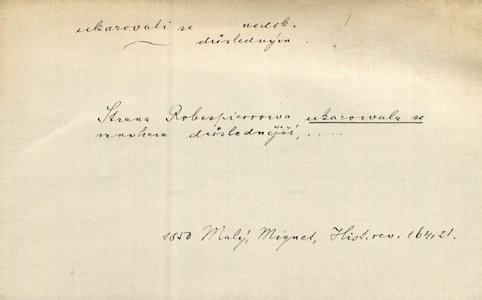 ukazovati se nedok.
důsledným.
Strana Robespierrowa ukazowala se
mnohem důslednější, ....
1850 Malý, Mignet, Hist. rev. 164, 21.